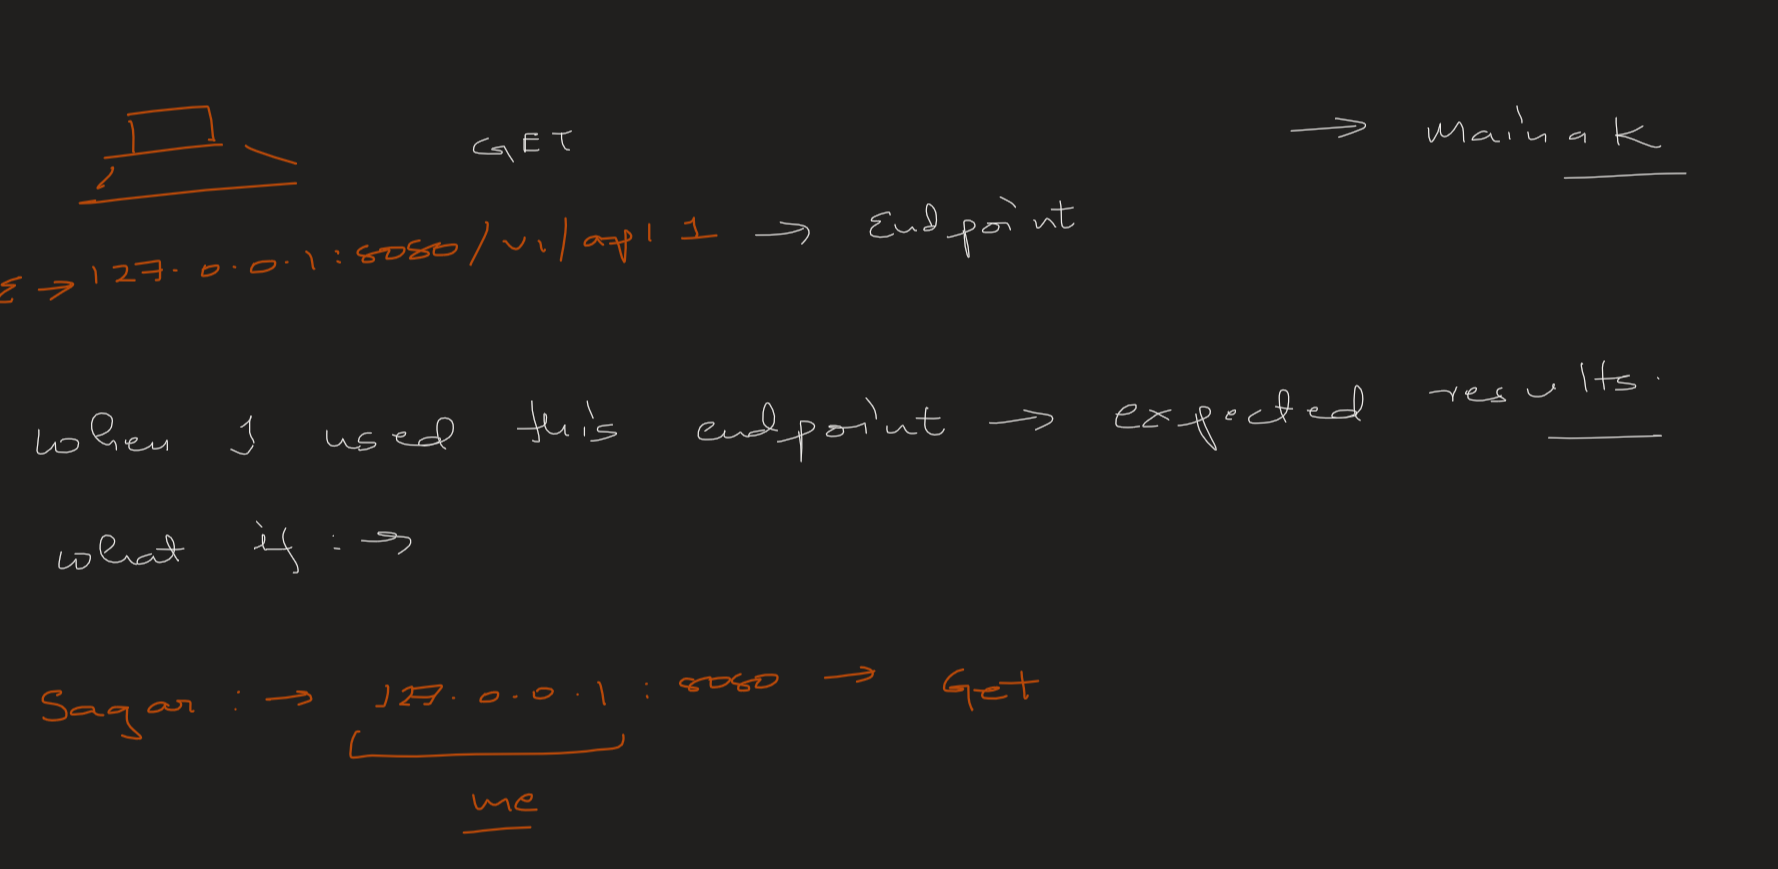 GET → Mainak
→ 127.0.0.1:8080/v1/api1 → Endpoint
when I used this endpoint → expected results.
what if :→
Sagar :→ 127.0.0.1 : 8080 → Get
me